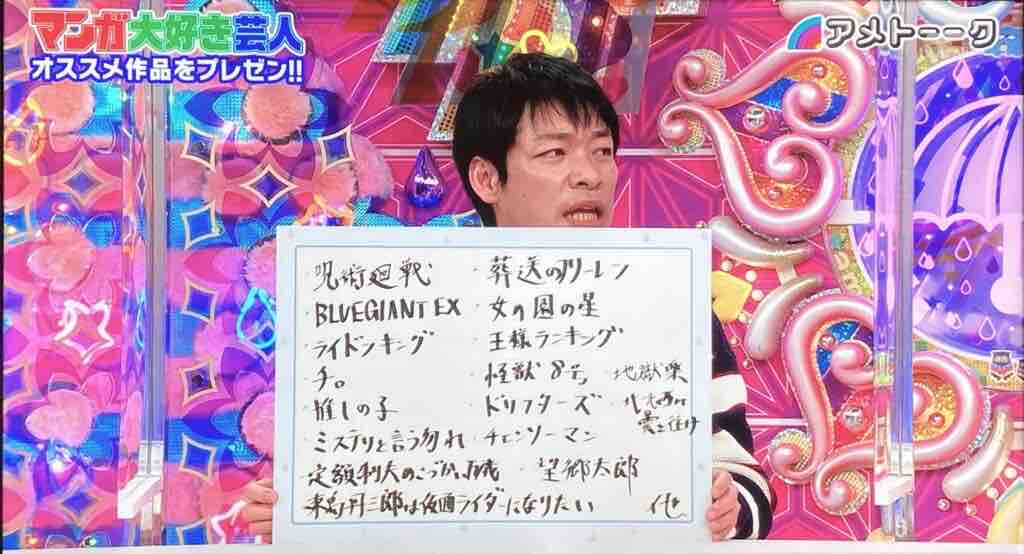 マンガ大好き芸人
オススメ作品をプレゼン!!
アメトーーク
・呪術廻戦 ・葬送のフリーレン
・BLUEGIANT EX ・女の園の星
・ライドンキング ・王様ランキング
・チ。 ・怪獣8号 ・地獄楽
・推しの子 ・ドリフターズ
・ミステリと言う勿れ ・チェンソーマン
・定額制夫のこづかい万歳 ・望郷太郎
・東島丹三郎は仮面ライダーになりたい 他